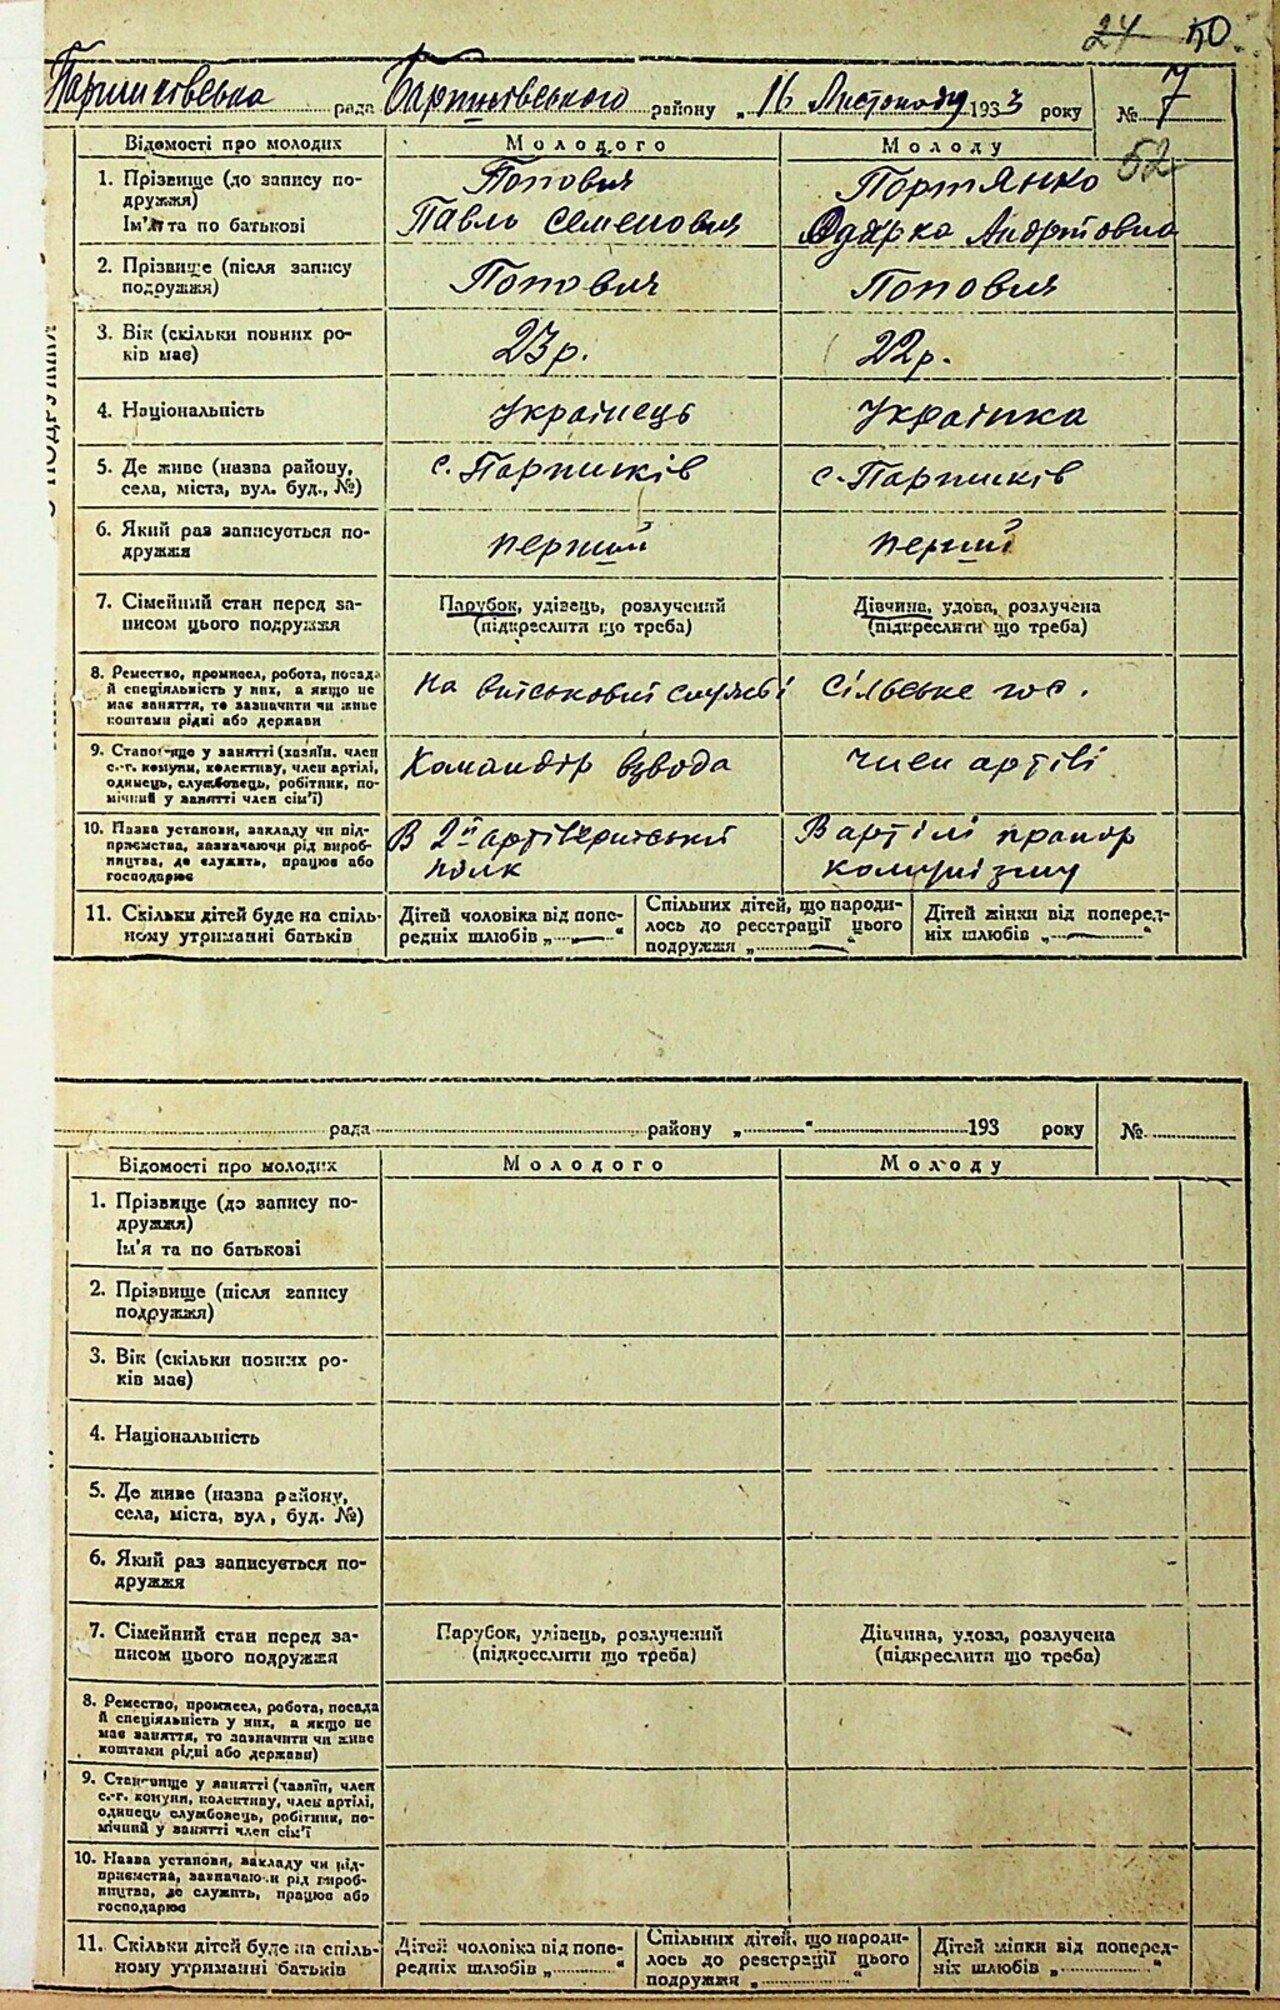 24 50.
Паришківська рада Баришівського району „ 16 Листопаду 1933 року № 7
52
Відомості про молодих Молодого Молоду
1. Прізвище (до запису по-
дружжя)
Ім'я та по батькові
Попович
Павль Семенович
Портянко
Одарка Андріовна
2. Прізвище (після запису
подружжя)
Попович Попович
3. Вік (скільки повних ро-
ків має)
23 р. 22 р.
4. Національність Українець Українка
5. Де живе (назва району,
села, міста, вул. буд., №)
с. Паришків с. Паришків
6. Який раз записується по-
дружжя
перший перший
7. Сімейний стан перед за-
писом цього подружжя
Парубок, удівець, розлучений
(підкреслити що треба)
Дівчина, удова, розлучена
(підкреслити що треба)
8. Ремество, промисел, робота, посада
й спеціяльність у них, а якщо не
має заняття, то зазначити чи живе
коштами рідні або держави
на військовій службі сільське гос.
9. Становище у занятті (хазяїн, член
с.-г. комуни, колективу, член артілі,
одинець, службовець, робітник, по-
мічний у занятті член сім'ї)
Командір взвода член артілі
10. Назва установи, закладу чи під-
приємства, зазначаючи рід вироб-
ництва, де служить, працює або
господарює
В 2й артілерийський
полк
В артілі прапор
комунізму
11. Скільки дітей буде на спіль-
ному утриманні батьків
Дітей чоловіка від попе-
редніх шлюбів „ — “
Спільних дітей, що народи-
лось до реєстрації цього
подружжя „ — “
Дітей жінки від поперед-
ніх шлюбів „ — “
рада району „ “ 193 року №
Відомості про молодих Молодого Молоду
1. Прізвище (до запису по-
дружжя)
Ім'я та по батькові
2. Прізвище (після запису
подружжя)
3. Вік (скільки повних ро-
ків має)
4. Національність
5. Де живе (назва району,
села, міста, вул, буд. №)
6. Який раз записується по-
дружжя
7. Сімейний стан перед за-
писом цього подружжя
Парубок, удівець, розлучений
(підкреслити що треба)
Дівчина, удова, розлучена
(підкреслити що треба)
8. Ремество, промисел, робота, посада
й спеціяльність у них, а якщо не
має заняття, то зазначити чи живе
коштами рідні або держави)
9. Становище у занятті (хазяїн, член
с.-г. комуни, колективу, член артілі,
одинець службовець, робітник, по-
мічний у занятті член сім'ї
10. Назва установи, закладу чи під-
приємства, зазначаючи рід вироб-
ництва, де служить, працює або
господарює
11. Скільки дітей буде на спіль-
ному утриманні батьків
Дітей чоловіка від попе-
редніх шлюбів „ “
Спільних дітей, що народи-
лось до реєстрації цього
подружжя „ “
Дітей жінки від поперед-
ніх шлюбів „ “